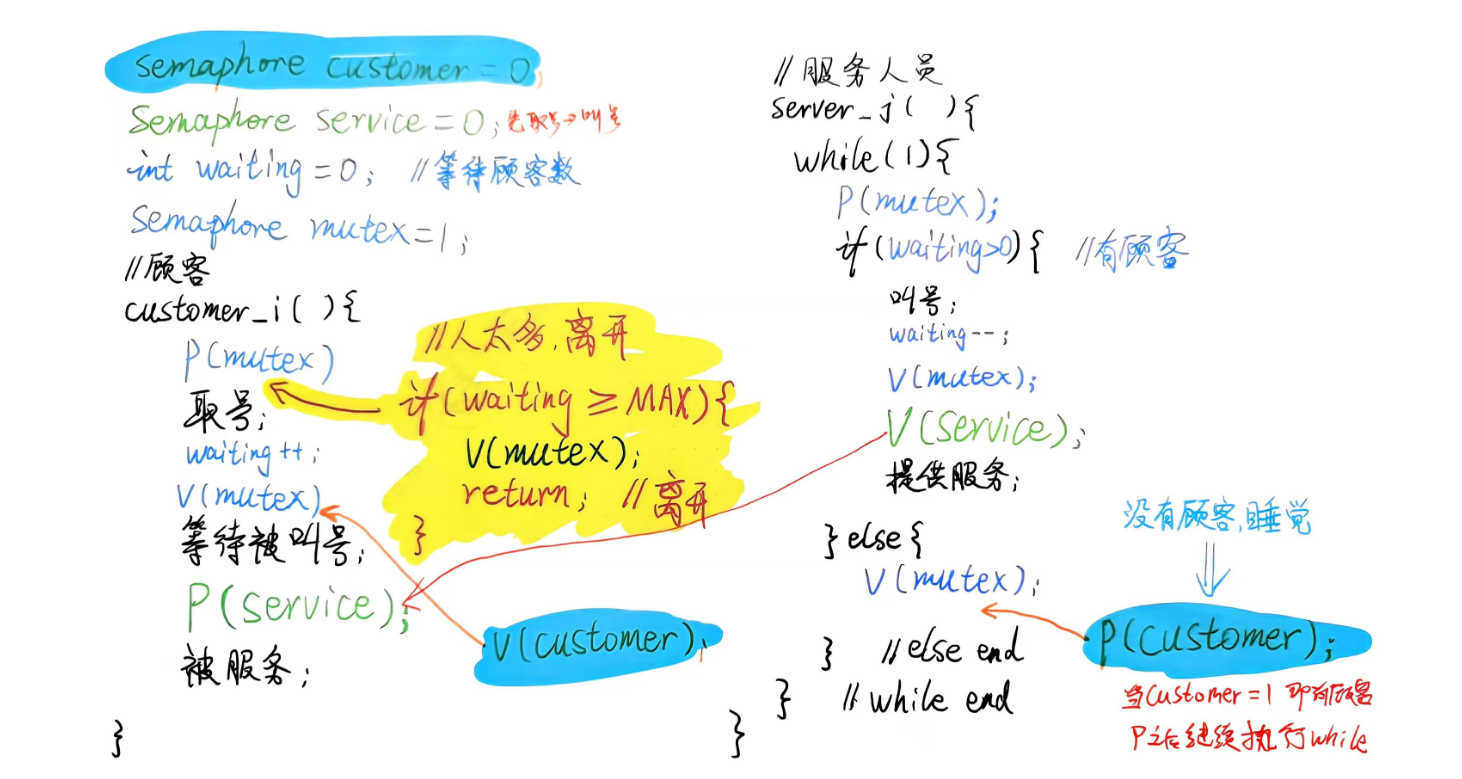 semaphore customer = 0;
Semaphore service = 0; 先取号→叫号
int waiting = 0; //等待顾客数
Semaphore mutex=1;
//顾客
customer_i( ){
P(mutex)
取号;
waiting ++;
V(mutex)
等待被叫号;
P(service);
被服务;
}
//人太多,离开
if(waiting ≥ MAX){
V(mutex);
return; //离开
}
V(customer);
//服务人员
server_j( ){
while(1){
P(mutex);
if(waiting>0){ //有顾客
叫号;
waiting--;
V(mutex);
V(service);
提供服务;
}else{
V(mutex);
没有顾客,睡觉
P(customer);
} //else end
当customer=1 即有顾客
P之后继续执行while
} //while end
}